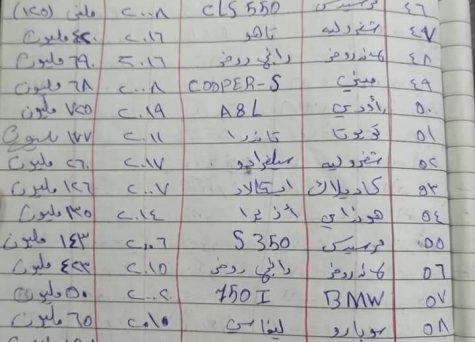 ٤٦ مرسيدس CLS 550 ٢٠٠٨ مليون (١٢٥)
٤٧ شفروليه تاهو ٢٠١٦ مليون
٤٨ لاندروفر رانج روفر ٢٠١٦ مليون
٤٩ ميني COOPER-S ٢٠٠٨ ٦٨ مليون
٥٠ أودي A8L ٢٠١٩ ٧٢٥ مليون
٥١ تويوتا تاندرا ٢٠١١ ١٧٧ مليون
٥٢ شفروليه سيلفرادو ٢٠١٧ ٢٦٠ مليون
٥٣ كاديلاك اسكالاد ٢٠٠٧ ١٢٦ مليون
٥٤ هونداي أزيرا ٢٠١٤ ١٣٥ مليون
٥٥ مرسيدس S 350 ٢٠٠٦ ١٤٣ مليون
٥٦ لاندروفر رانج روفر ٢٠١٥ ٤٢٣ مليون
٥٧ BMW 750 I ٢٠٠٢ ٥٠ مليون
٥٨ سوبارو ليفاسي ٢٠١٠ ٦٥ مليون